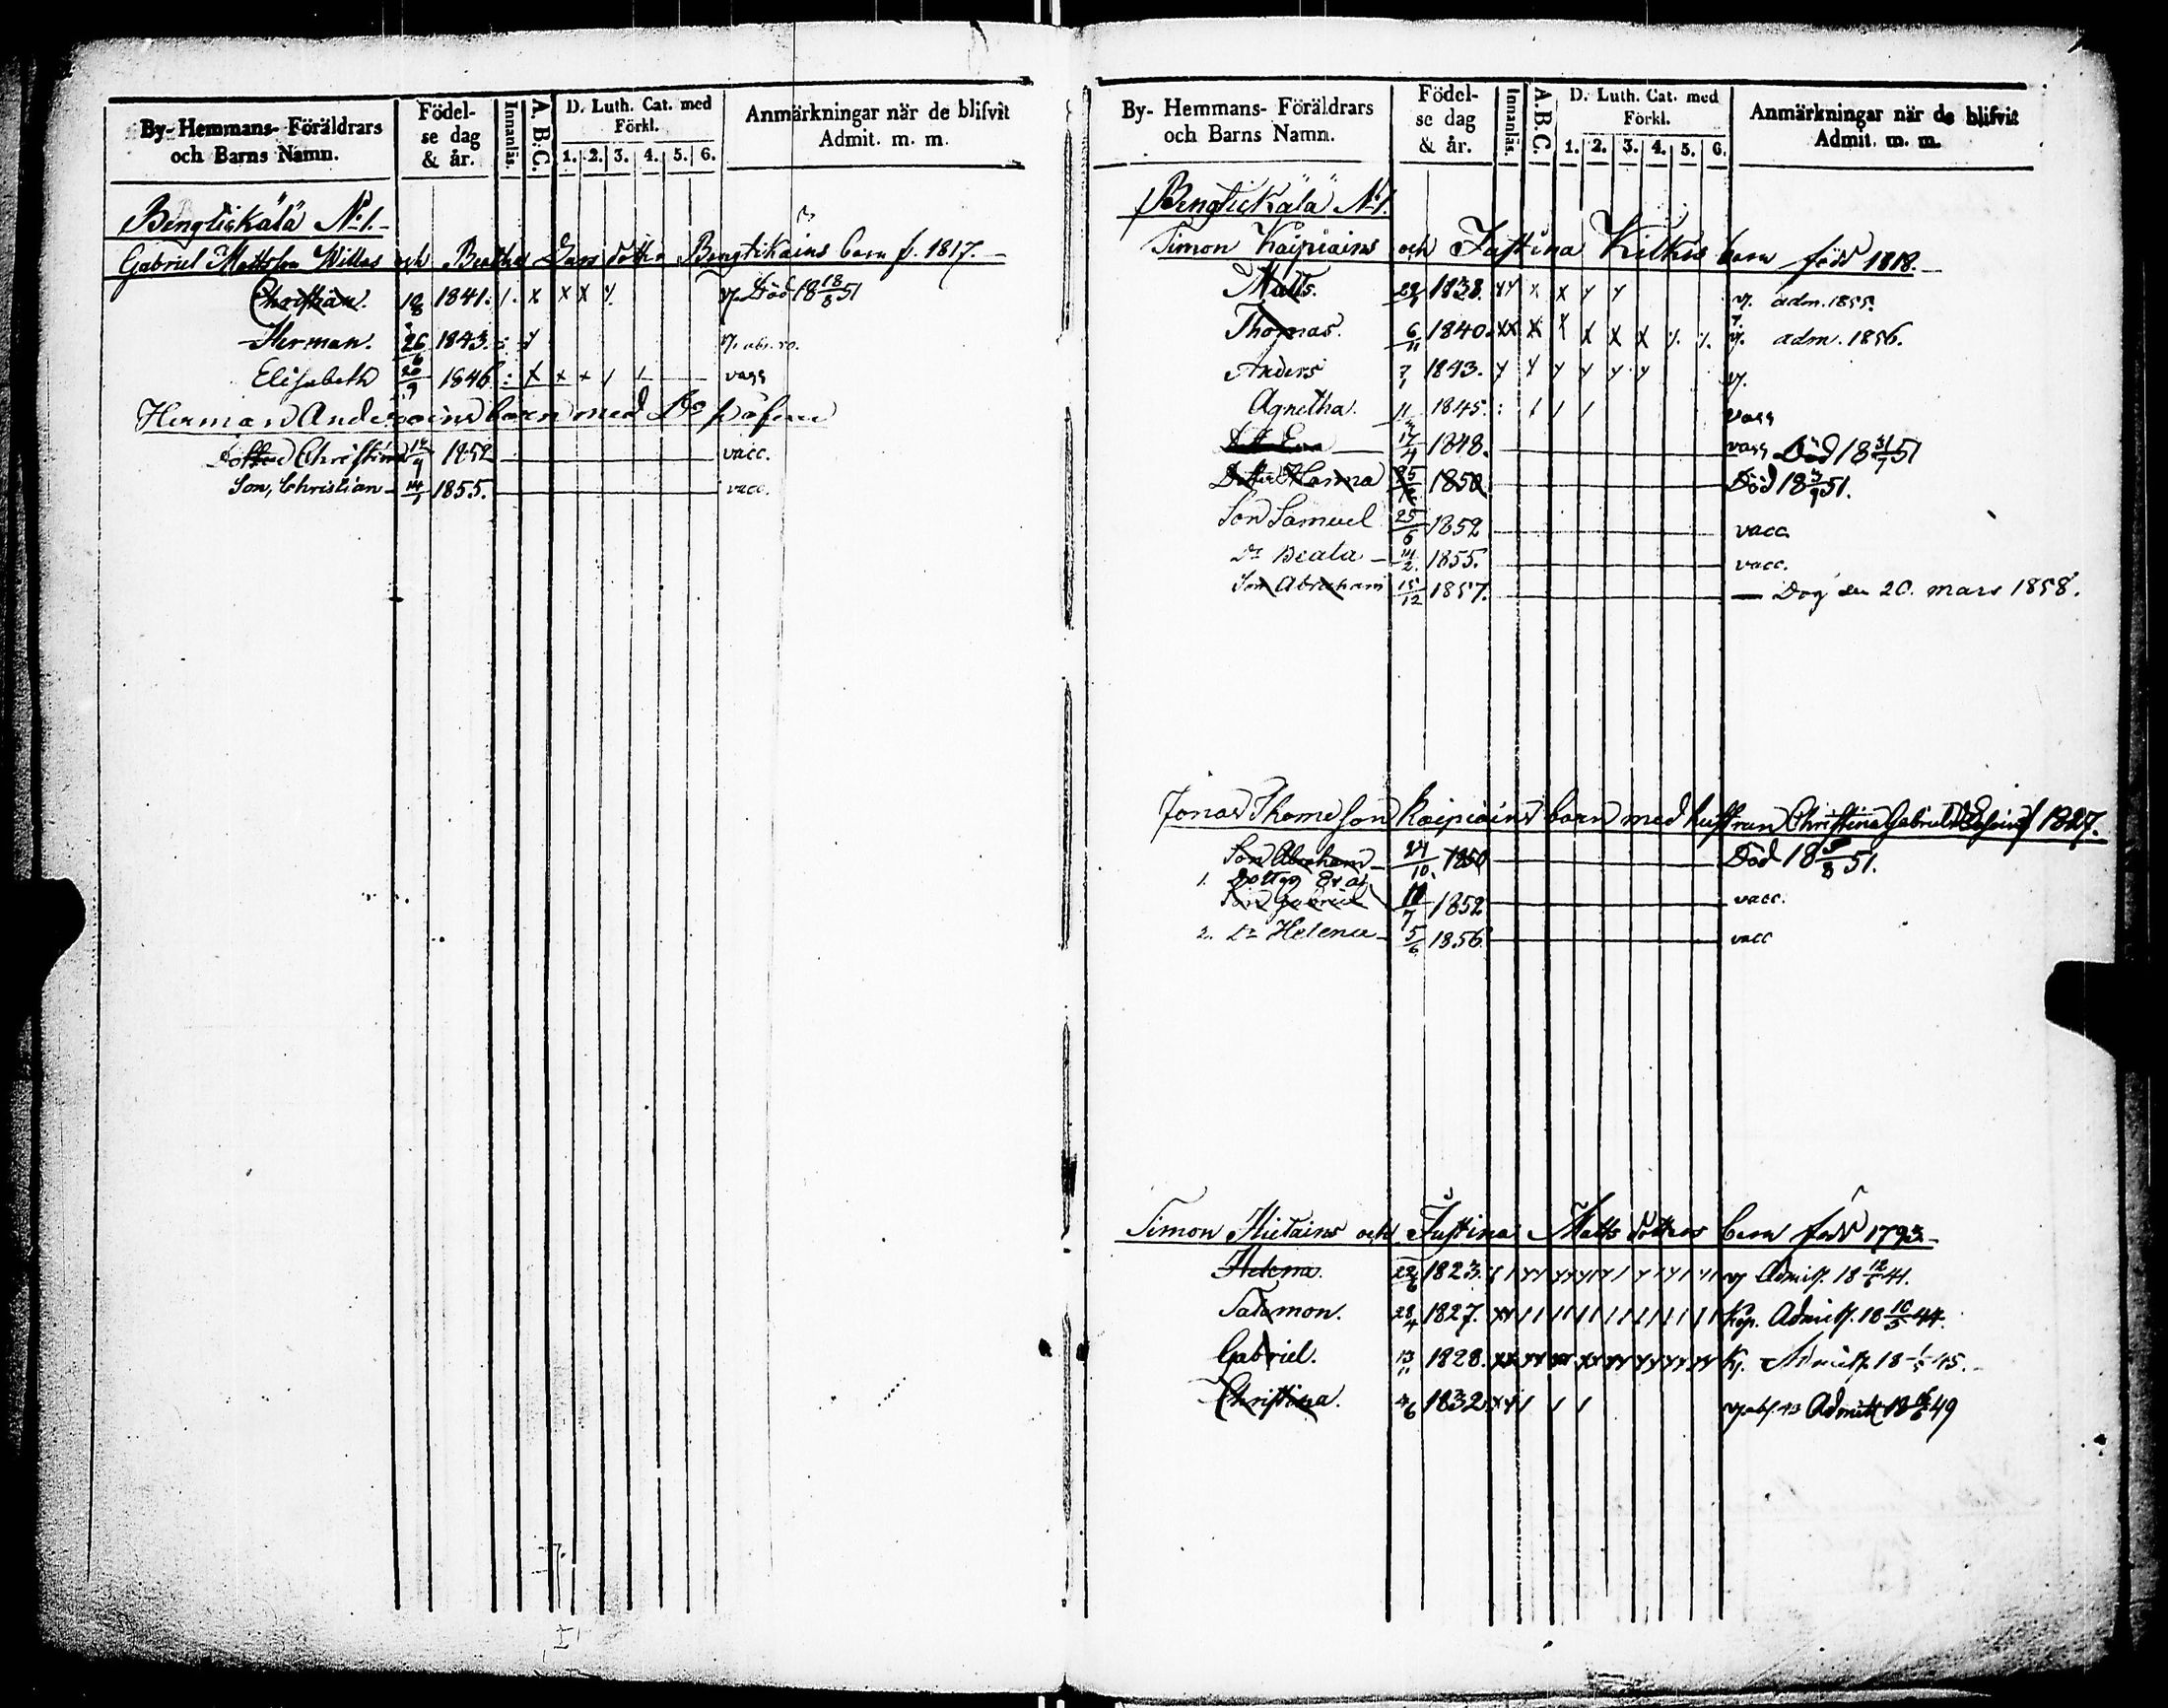 By- Hemmans- Föräldrars och Barns Namn. Födel-se dag & år. Innanläs. A.B.C. D. Luth. Cat. med Förkl. 1. 2. 3. 4. 5. 6. Anmärkningar när de blifvit Admit. m. m.
Bengtiskälä No 1.
Gabriel Mattsson Willas och Beatha Lars dotter Bengtikains barn f. 1817.
Christian. 1841. Död 18 18/8 51
Herman. 26/6 1843.
Elisabeth 20/9 1846. vacc
Herman Anderssoins barn med
Dotter Christina 1852 vacc.
Son, Christian 14/1 1855. vacc.
By- Hemmans- Föräldrars och Barns Namn. Födel-se dag & år. Innanläs. A.B.C. D. Luth. Cat. med Förkl. 1. 2. 3. 4. 5. 6. Anmärkningar när de blifvit Admit. m. m.
Bengtiskälä No 1.
Simon Kaipiains och Justina Kilkis barn född 1818.
Matts. 1838. v. adm. 1855.
Thomas. 6/11 1840. v. adm. 1856.
Anders 7/1 1843. v.
Agnetha. 1845. vacc
Eva 17/4 1848. vacc Död 18 31/7 51
Dotter Hanna 1850 Död 18 3/9 51.
Son Samuel 25/6 1852 vacc
Dr Beata 14/2 1855. vacc.
Son Abraham 15/12 1857. Dog den 20. mars 1858.
Jonas Thomeson Kaipiains barn med hustrun Christina Gabriels f 1827.
Son Abraham 24/10. 1850 Död 18 5/8 51.
1. Dotter Eva
Son Gabriel 10/7 1852 vacc.
2. Dr Helena 5/6 1856 vacc
Simon Hietains och Justina Matts dotters barn född 1793.
Helena. 22/6 1823. v Admitt. 18 12/6 41.
Salomon. 28/4 1827. kop. Admitt. 18 10/5 44.
Gabriel. 13/11 1828. Admitt. 18 45.
Christina. 1832. Admitt 18 49